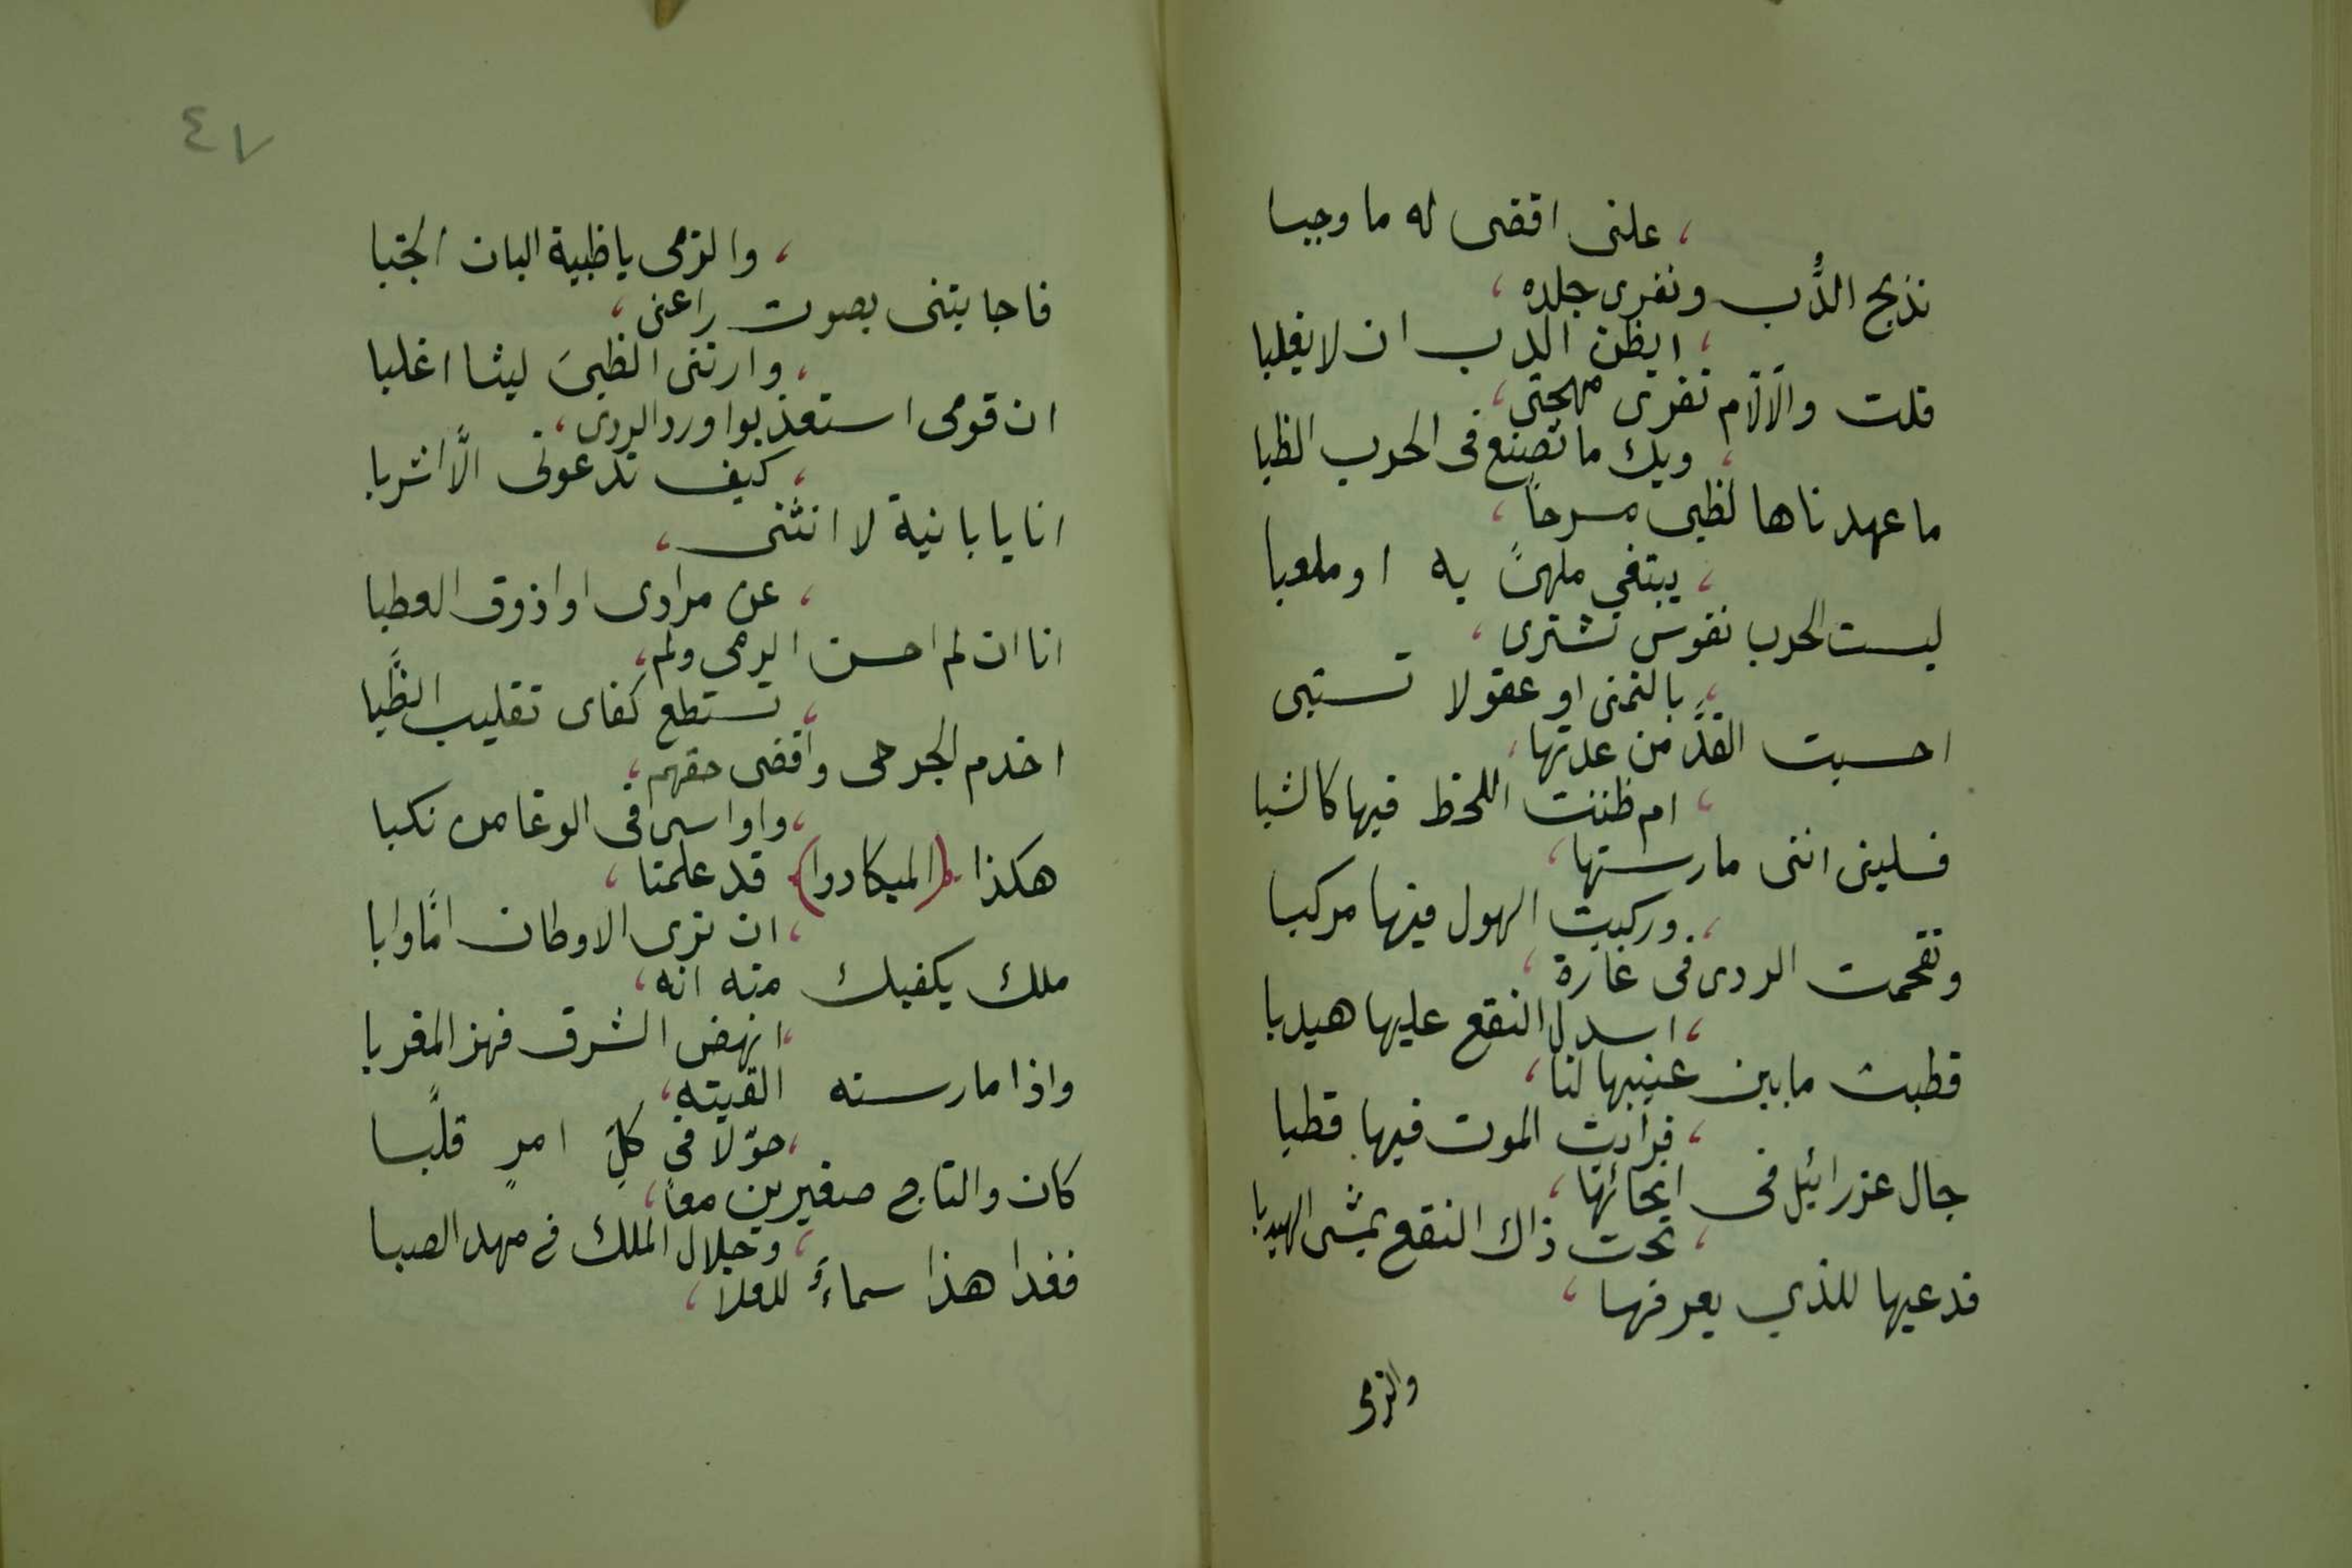 ، علنى اقضى له ما وجبا
نذبح الدُّب ونفرى جلده ،
، ايظن الدب ان لا يغلبا
قلت والآلآم تفرى مهجتى ،
، ويك ما تصنع فى الحرب الظبا
ما عهدناها لظبى مسرحاً ،
، يبتغي ملهىً به او ملعبا
ليست الحرب نفوس تشترى ،
، بالتمنى او عقولا تستبى
احسبت القدَّ من عدتها ،
، ام ظننت اللحظ فيها كالشبا
فسلينى اننى مارستها ،
، وركبت الهول فيها مركبا
وتقحمت الردى فى غارة ،
، اسدل النقع عليها هيدبا
قطبت ما بين عينيها لنا ،
، فرأيت الموت فيها قطبا
جال عزرائيل فى انحائها ،
، تحت ذاك النقع يمشى الهيدبا
فدعيها للذي يعرفها ،
والزمى
٤٧
، والزمى يا ظبية البان الخبا
فاجابتنى بصوت راعنى ،
، وارتنى الظبىَ ليثا اغلبا
ان قومى استعذبوا ورد الردى ،
، كيف تدعونى الَّا اشربا
انا يابانية لا انثنى ،
، عن مرادى او اذوق العطبا
انا ان لم احسن الرمى ولم ،
، تستطع كفاى تقليب الظُّبا
اخدم الجرحى واقضى حقهم ،
، واواسى فى الوغا من نكبا
هكذا (الميكادوا) قد علمتا ،
، ان نرى الاوطان امًّا وابا
ملك يكفيك منه انه ،
، انهض الشرق فهز المغربا
واذا مارسته القيته ،
، حوّلا فى كلِّ امرٍ قلَّبا
كان والتاج صغيرين معاً ،
، وجلال الملك فى مهد الصبا
فغدا هذا سماءً للعلا ،